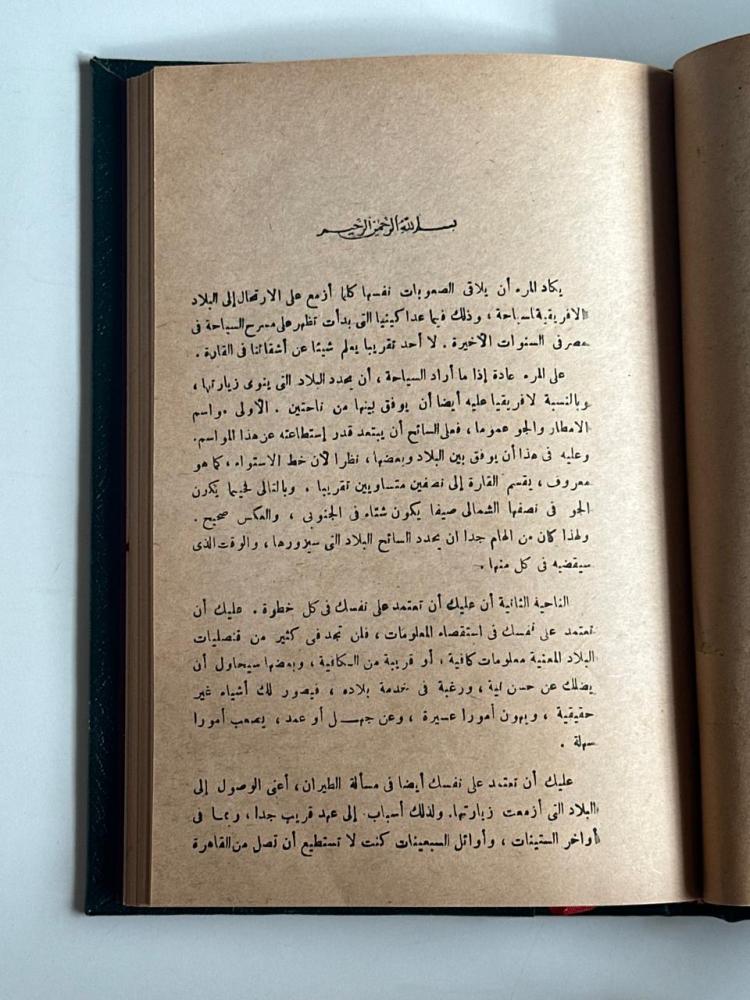 بسم الله الرحمن الرحيم
يكاد المرء أن يلاقى الصعوبات نفسها كلما أزمع على الارتحال إلى البلاد
الافريقية لسياحة ، وذلك فيما عدا كينيا التى بدأت تظهر على مسرح السياحة فى
مصر فى السنوات الأخيرة . لا أحد تقريبا يعلم شيئا عن أشقائنا فى القارة .
على المرء عادة إذا ما أراد السياحة ، أن يحدد البلاد التى ينوى زيارتها ،
وبالنسبة لافريقيا عليه أيضا أن يوفق بينها من ناحتين . الأولى مواسم
الامطار والجو عموما ، فعلى السائح أن يبتعد قدر إستطاعته عن هذا المواسم.
وعليه فى هذا أن يوفق بين البلاد وبعضها ، نظرا لأن خط الاستواء ، كما هو
معروف ، يقسم القارة إلى نصفين متساويين تقريبا . وبالتالى فحيما يكون
الجو فى نصفها الشمالى صيفا يكون شتاء فى الجنوبى ، والعكس صحيح .
ولهذا كان من الهام جدا ان يحدد السائح البلاد التى سيزورها ، والوقت الذى
سيقضيه فى كل منها .
الناحية الثانية أن عليك أن تعتمد على نفسك فى كل خطوة . عليك أن
تعتمد على نفسك فى استقصاء المعلومات ، فلن تجد فى كثير من قنصليات
البلاد المعنية معلومات كافية ، أو قريبة من الكافية ، وبعضها سيحاول أن
يضلك عن حسن نية ، ورغبة فى خدمة بلاده ، فيصور لك أشياء غير
حقيقية ، ويهون أمورا عسيرة ، وعن جهل أو عمد ، يصعب أمورا
سهلة .
عليك أن تعتمد على نفسك أيضا فى مسألة الطيران ، أعنى الوصول إلى
البلاد التى أزمعت زيارتها. ولذلك أسباب . إلى عهد قريب جدا ، ربما فى
أواخر الستينات ، وأوائل السبعينات كنت لا تستطيع أن تصل من القاهرة